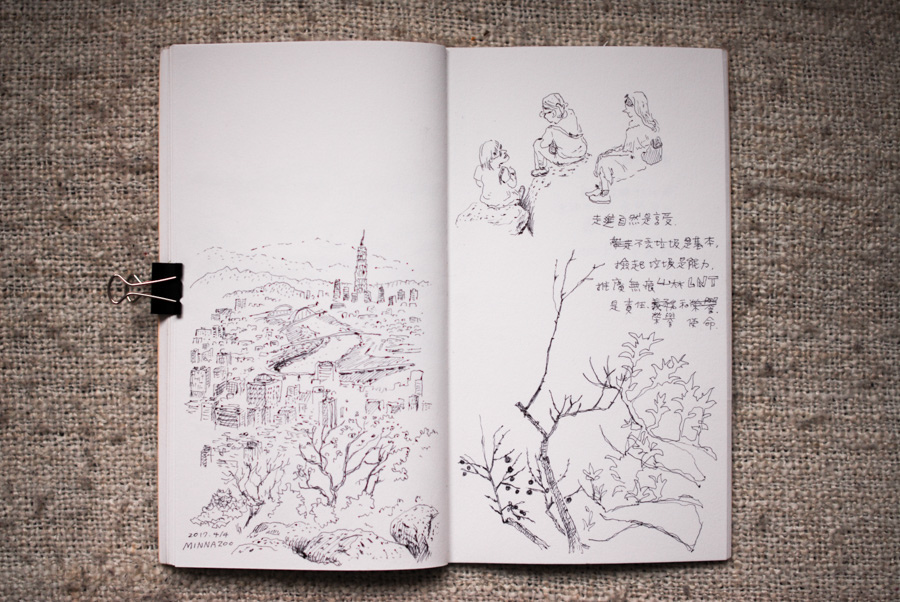 2017. 4/4
MINNAZOO
走進自然是享受.
不丟垃圾是基本,
撿起垃圾是能力,
推廣無痕山林 LNT
是責任. 和
榮譽 使命.